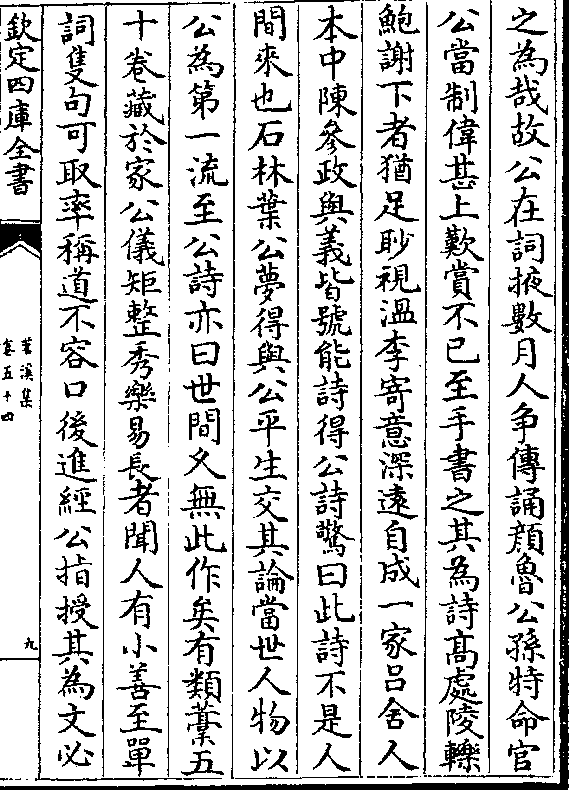 之為哉故公在詞掖數月人争傳誦顔魯公孫特命官
公當制偉甚上歎賞不已至手書之其為詩髙處陵轢
鮑謝下者猶足眇視溫李寄意深遠自成一家吕舍人
本中陳參政與義皆號能詩得公詩驚曰此詩不是人
間來也石林葉公夢得與公平生交其論當世人物以
公為第一流至公詩亦曰世間久無此作矣有類藳五
十卷藏於家公儀矩整秀樂易長者聞人有小善至單
詞隻句可取率稱道不容口後進經公指授其為文必
欽定四庫全書
苕溪集
卷五十四
九